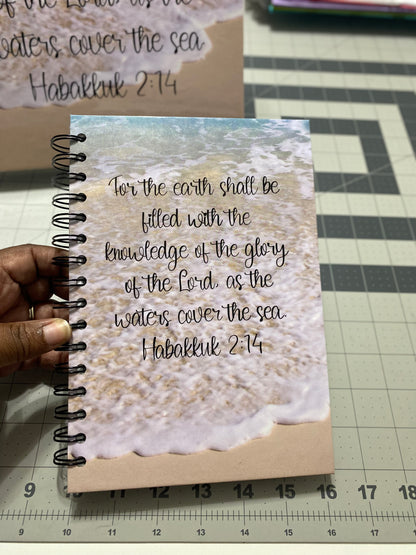 of the Lord, as the
waters cover the sea
Habakkuk 2:14
For the earth shall be
filled with the
knowledge of the glory
of the Lord, as the
waters cover the sea.
Habakkuk 2:14
9 10 11 12 13 14 15 16 17 18